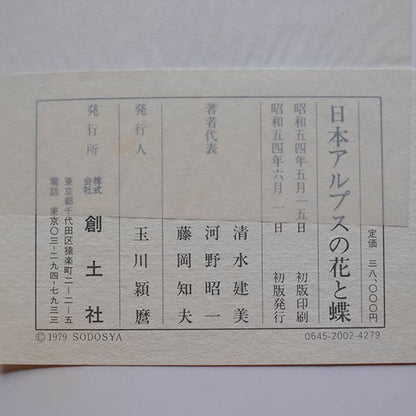 日本アルプスの花と蝶
定価 三八、〇〇〇円
昭和五四年五月一五日 初版印刷
昭和五四年六月 一日 初版発行
著者代表
清水建美
河野昭一
藤岡知夫
発行人 玉川穎麿
発行所 株式会社 創土社
東京都千代田区猿楽町二-二-五
電話 東京〇三-二九四-七九三三
© 1979 SODOSYA
0645-2002-4279